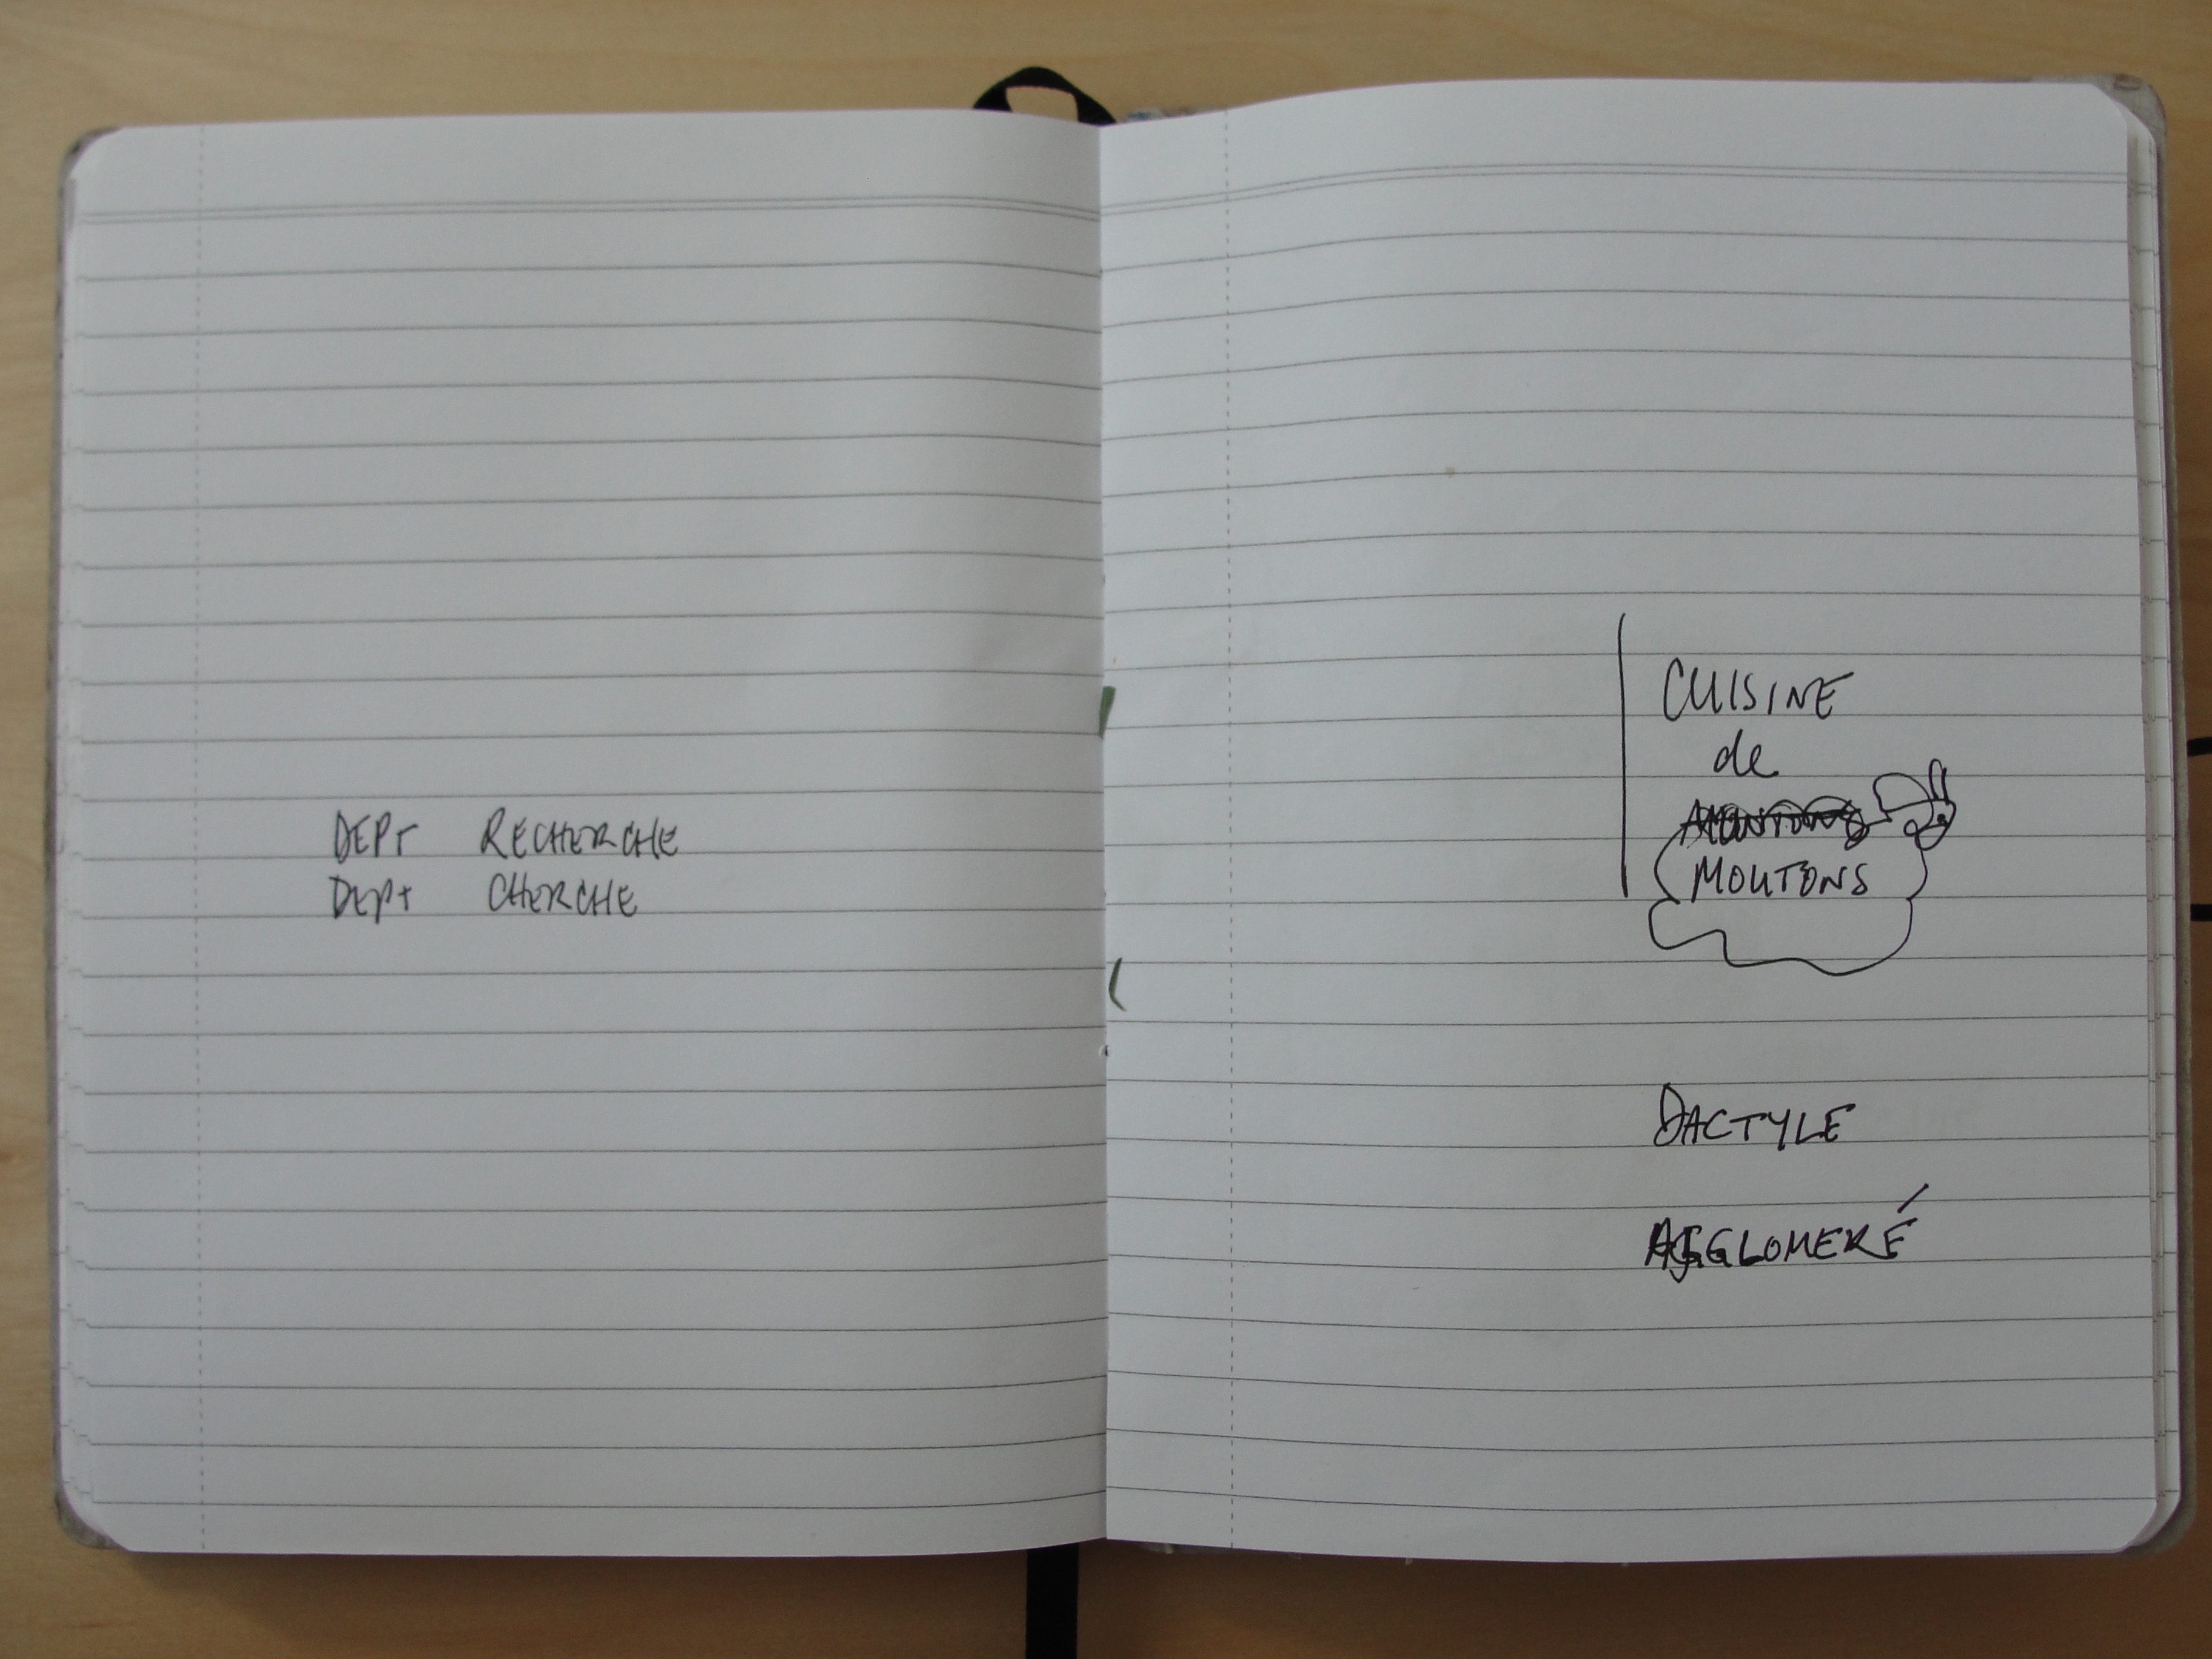 DEPT RECHERCHE
Dept CHERCHE
CUISINE
de
MOUTONS
DACTYLE
AGGLOMERÉ